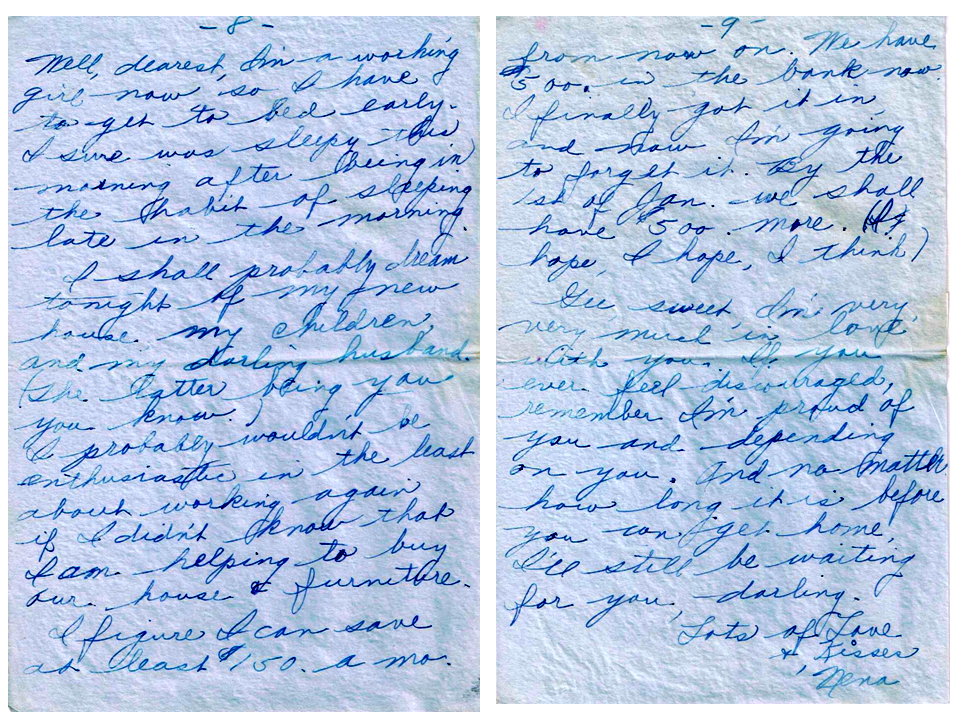 -8-
Well, dearest, I'm a working
girl now, so I have
to get to bed early.
I sure was sleepy this
morning after being in
the habit of sleeping
late in the morning.
I shall probably dream
tonight of my new
house, my children,
and my darling husband.
(The latter being you
you know.)
I probably wouldn't be
enthusiastic in the least
about working again
if I didn't know that
I am helping to buy
our house & furniture.
I figure I can save
at least $150. a mo.
-9-
from now on. We have
$500. in the bank now.
I finally got it in
and now I'm going
to forget it. By the
1st of Jan. we shall
have $500. more. (I
hope, I hope, I think)
Gee sweet I'm very,
very much in love
with you. If you
ever feel discouraged,
remember I'm proud of
you and depending
on you. And no matter
how long it is before
you can get home,
I'll still be waiting
for you, darling.
Lots of Love
& Kisses
Nena